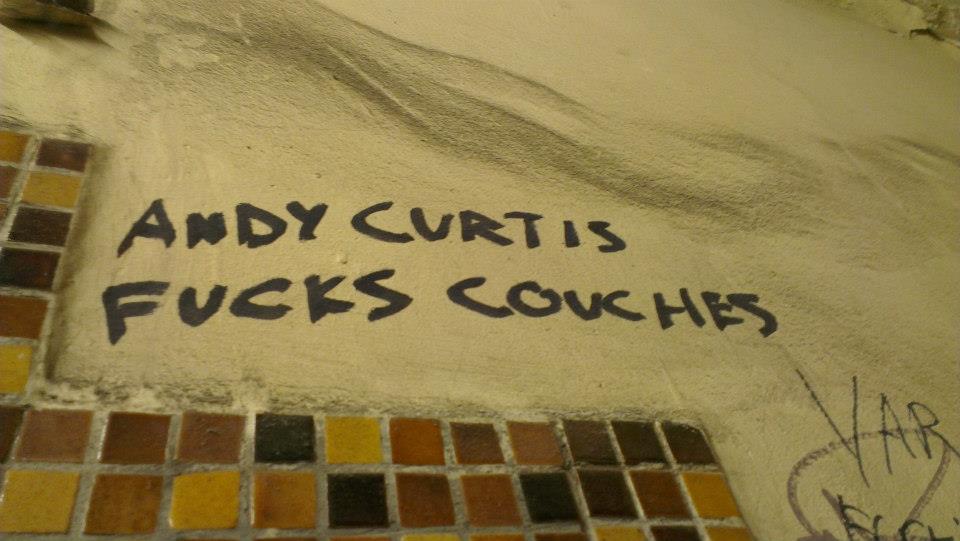 ANDY CURTIS
FUCKS COUCHES
VAR